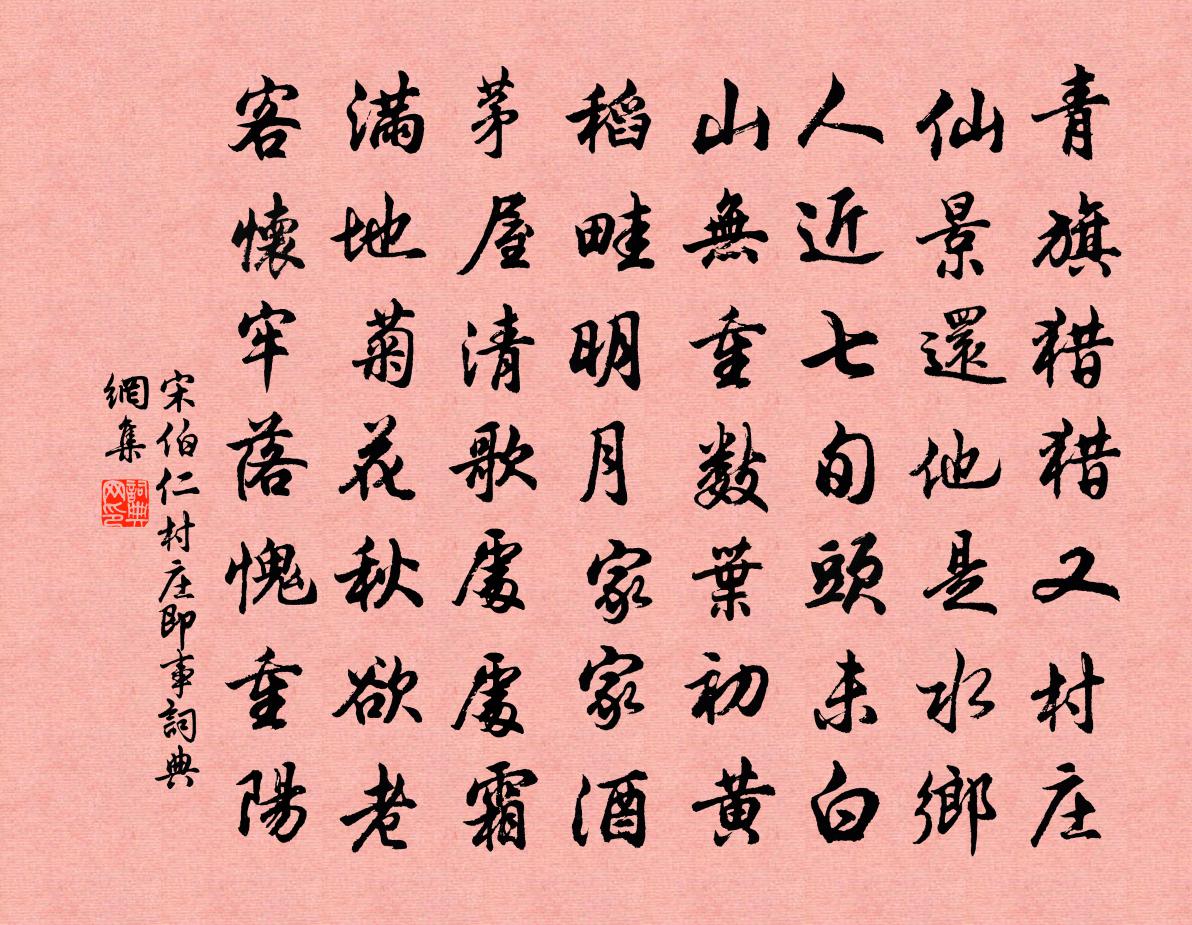 青旗猎猎又村庄
仙景還他是水鄉
人近七旬頭未白
山無重數葉初黄
稻畦明月家家酒
茅屋清歌處處霜
滿地菊花秋欲老
客懷牢落愧重陽
宋伯仁村庄即事詞典
網集
詞典
网印